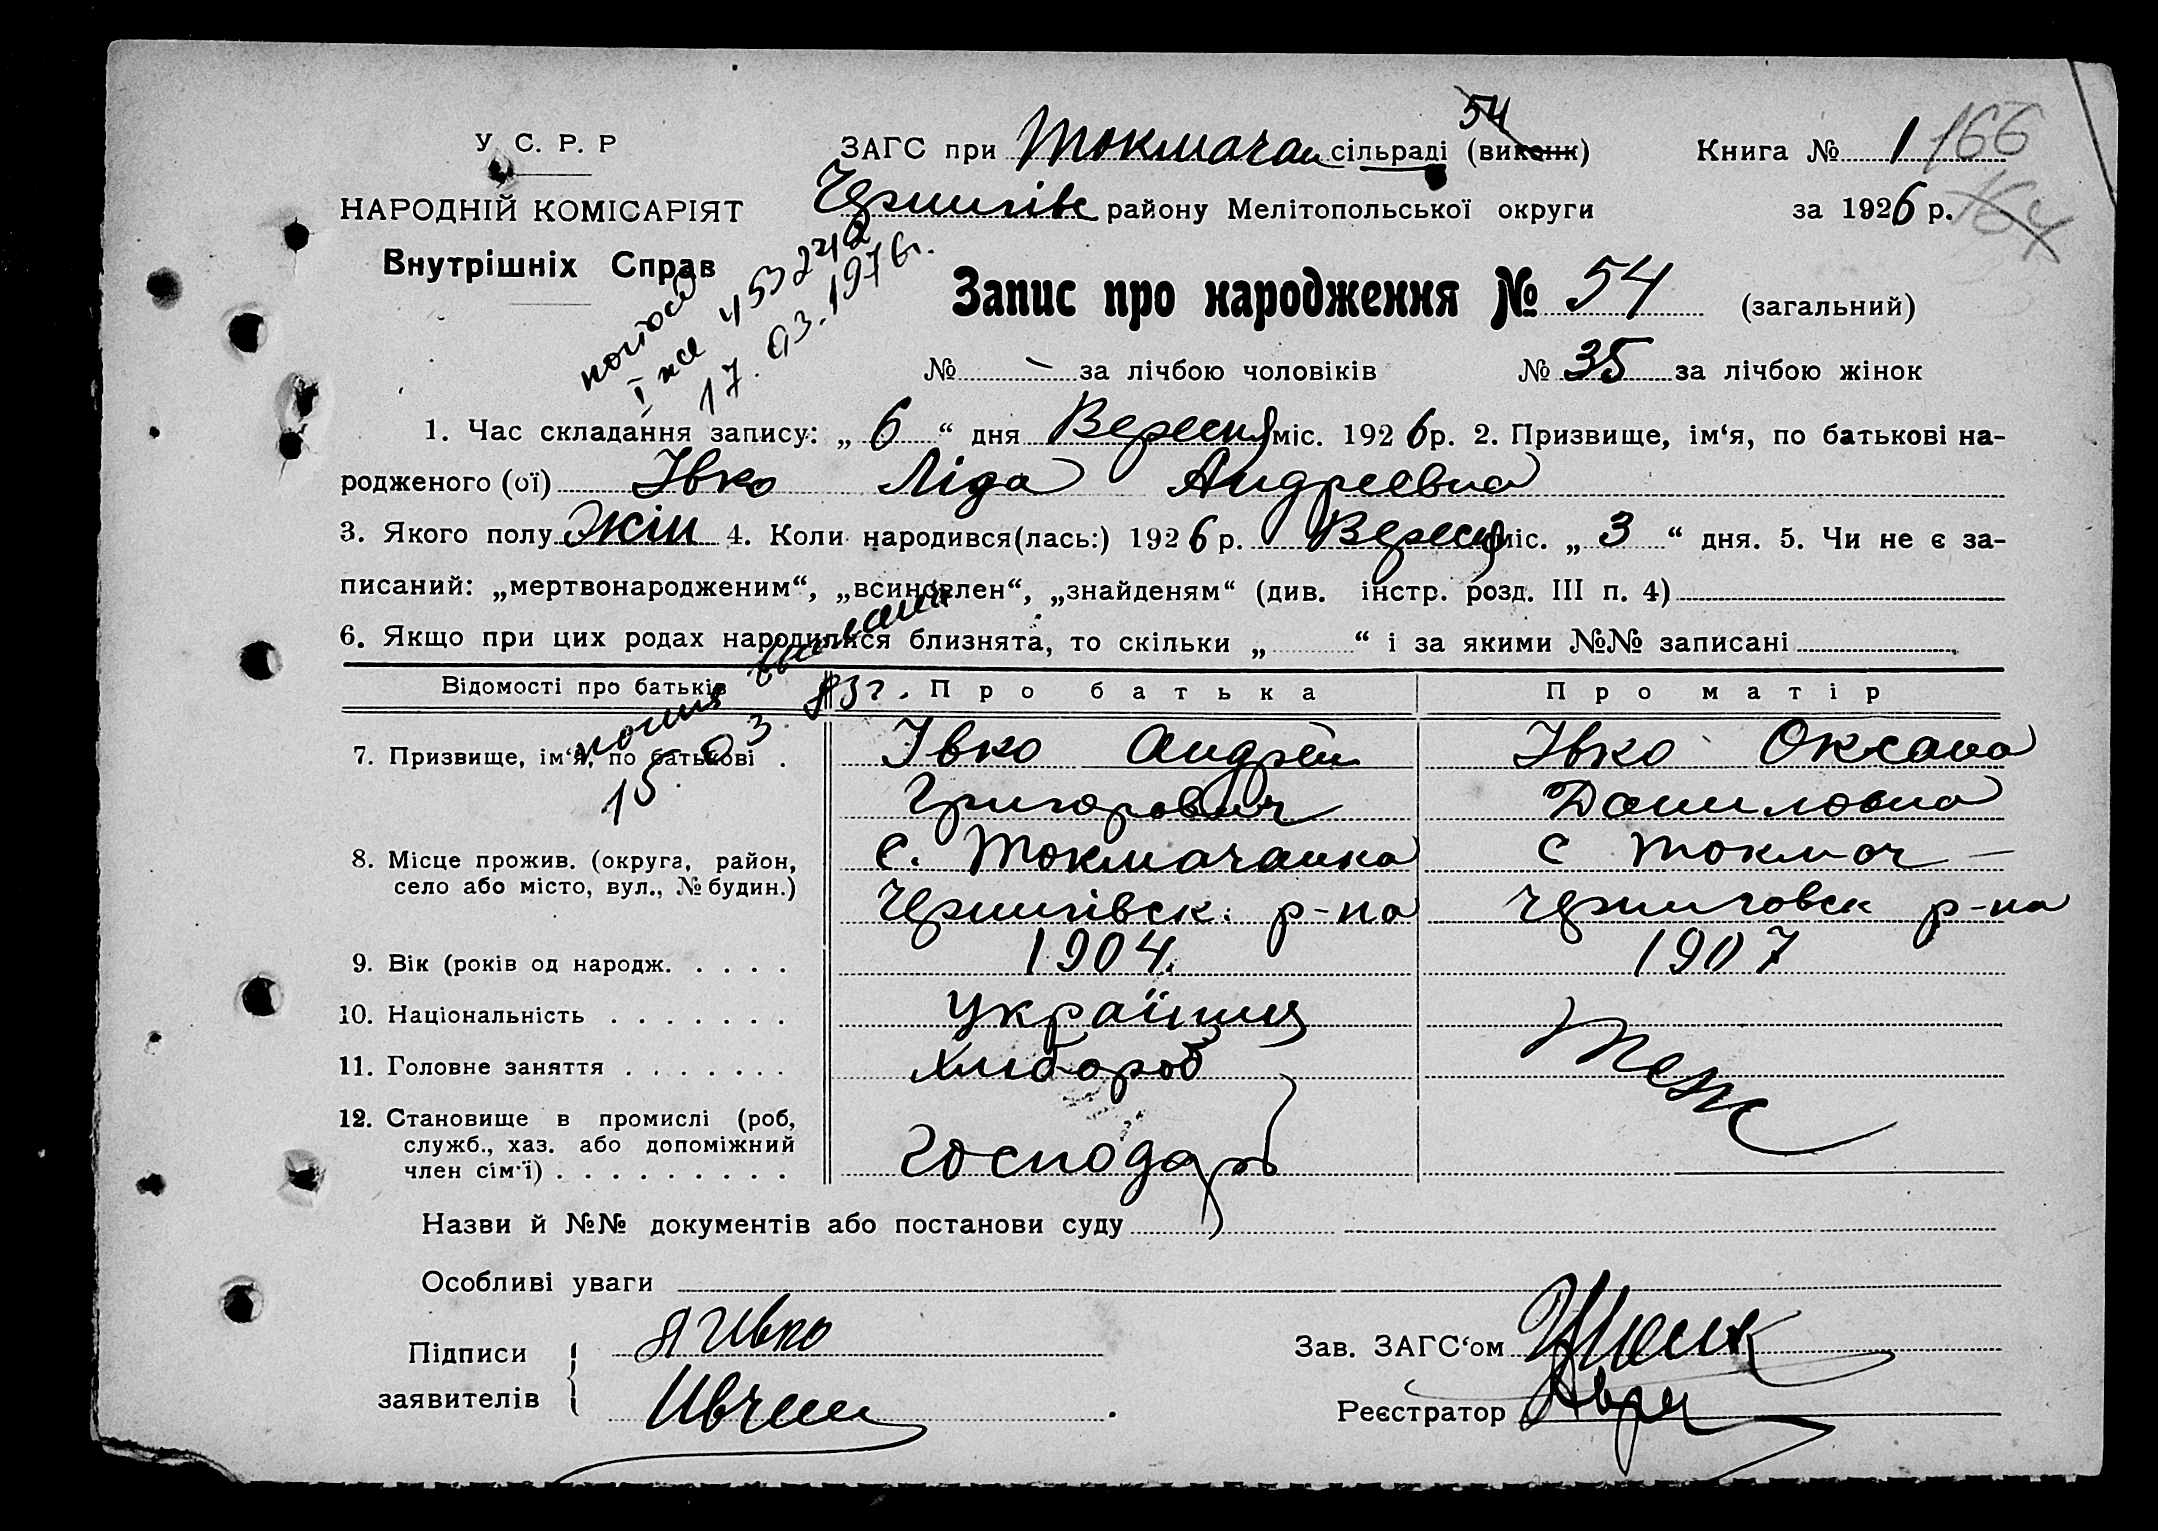 54
У. С. Р. Р
ЗАГС при Токмачан сільраді (виконк)
Книга № 1 166
НАРОДНІЙ КОМІСАРІЯТ
Чернигівк району Мелітопольської округи
за 1926 р. 164
Внутрішніх Справ
Запис про народження № 54 (загальний)
17.03.1976г.
№ - за лічбою чоловіків № 35 за лічбою жінок
1. Час складання запису: „ 6 “ дня Вересня міс. 1926 р. 2. Призвище, ім‘я, по батькові на-
родженого (ої) Івко Ліда Андреевна
3. Якого полу жін 4. Коли народився(лась:) 1926 р. Вересня міс. „ 3 “ дня. 5. Чи не є за-
писаний: „мертвонародженим“, „всиновлен“, „знайденям“ (див. інстр. розд. III п. 4)
6. Якщо при цих родах народилися близнята, то скільки „ “ і за якими №№ записані
Відомості про батьків Про батька Про матір
15.03.83г.
7. Призвище, ім‘я, по батькові . Івко Андрей Івко Оксана
Григорович Даниловна
8. Місце прожив. (округа, район, с. Токмачанка с Токмач -
село або місто, вул., № будин.) Чернигівск. р-на Черниговск р-на
9. Вік (років од народж. . . . . 1904. 1907
10. Національність . . . . . . . українці
11. Головне заняття . . . . . . . хлибороб теж
12. Становище в промислі (роб,
служб., хаз. або допоміжний господарь
член сім‘ї) . . . . . . . . .
Назви й №№ документів або постанови суду
Особливі уваги
Підписи Я Ивко Зав. ЗАГС‘ом
заявителів Реєстратор